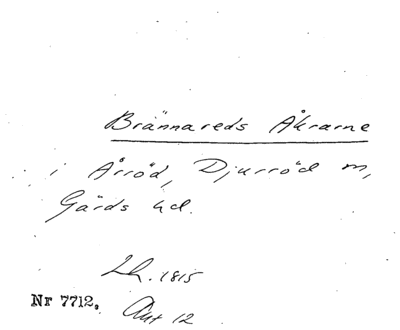 Brännareds Åkrarne
i Årröd, Djurröd m,
Gärds hd.
Lh. 1815
Nr 7712. Akt 12